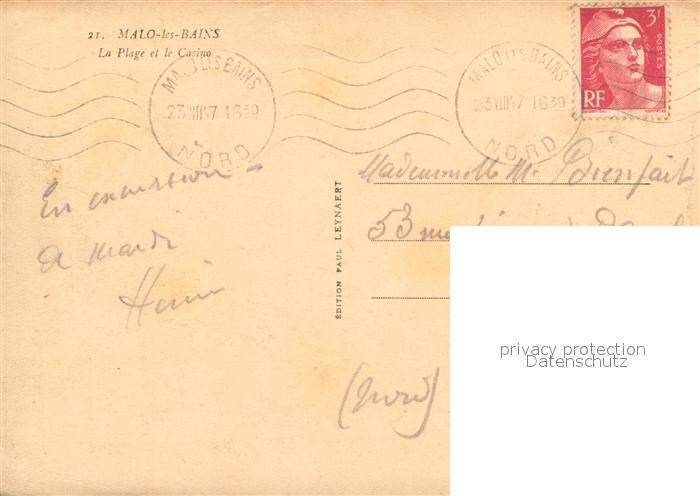 21. MALO-les-BAINS
La Plage et le Casino
MALO LES BAINS
23 VIII 47 16 30
NORD
MALO LES BAINS
23 VIII 47 16 30
NORD
3F
POSTES
RF
En excursion
à mardi
ÉDITION PAUL LEYNAERT
Mademoiselle M. Bienfait
53
(Nord)
privacy protection
Datenschutz